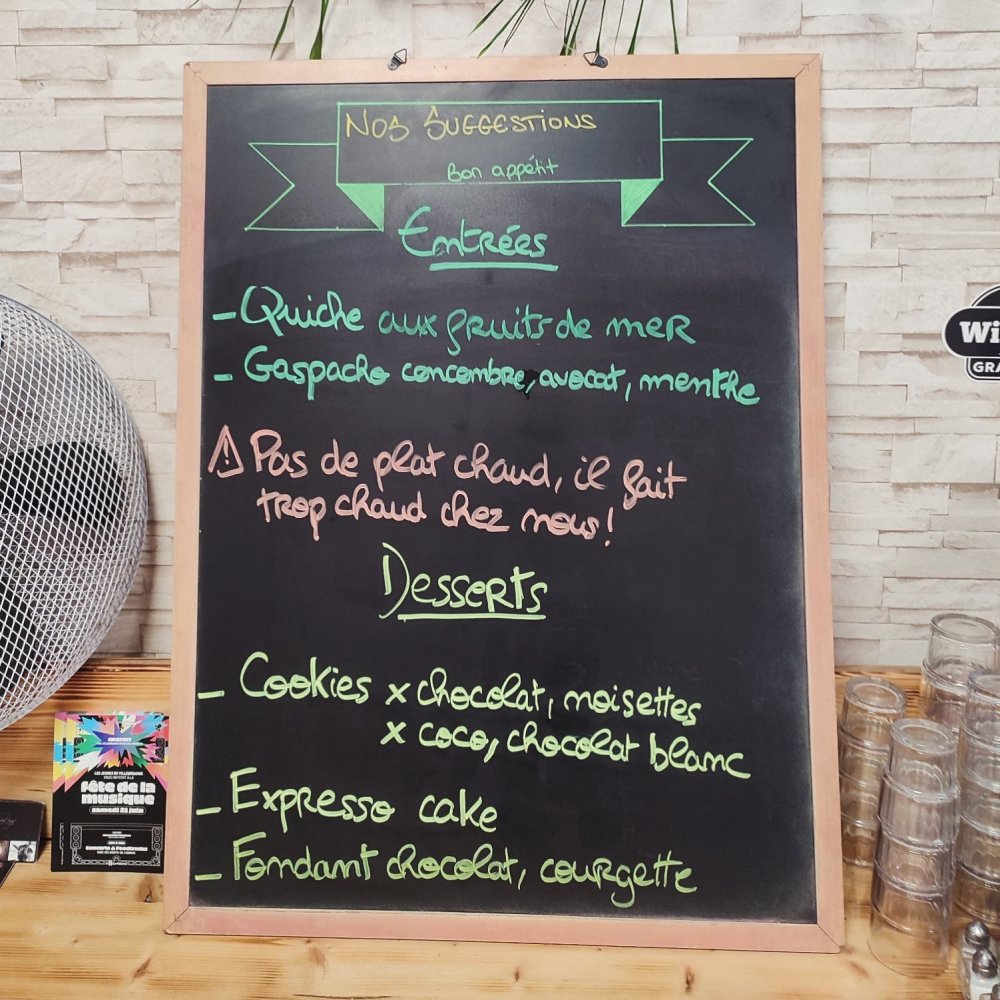 Nos Suggestions
Bon appétit
Entrées
- Quiche aux fruits de mer
- Gaspacho concombre, avocat, menthe
⚠ Pas de plat chaud, il fait
trop chaud chez nous!
Desserts
- Cookies x chocolat, noisettes
x coco, chocolat blanc
- Expresso cake
- Fondant chocolat, courgette
GRATUIT
fête de la
musique
samedi 21 juin
Concerts & Foodtrucks
Wi
GRA